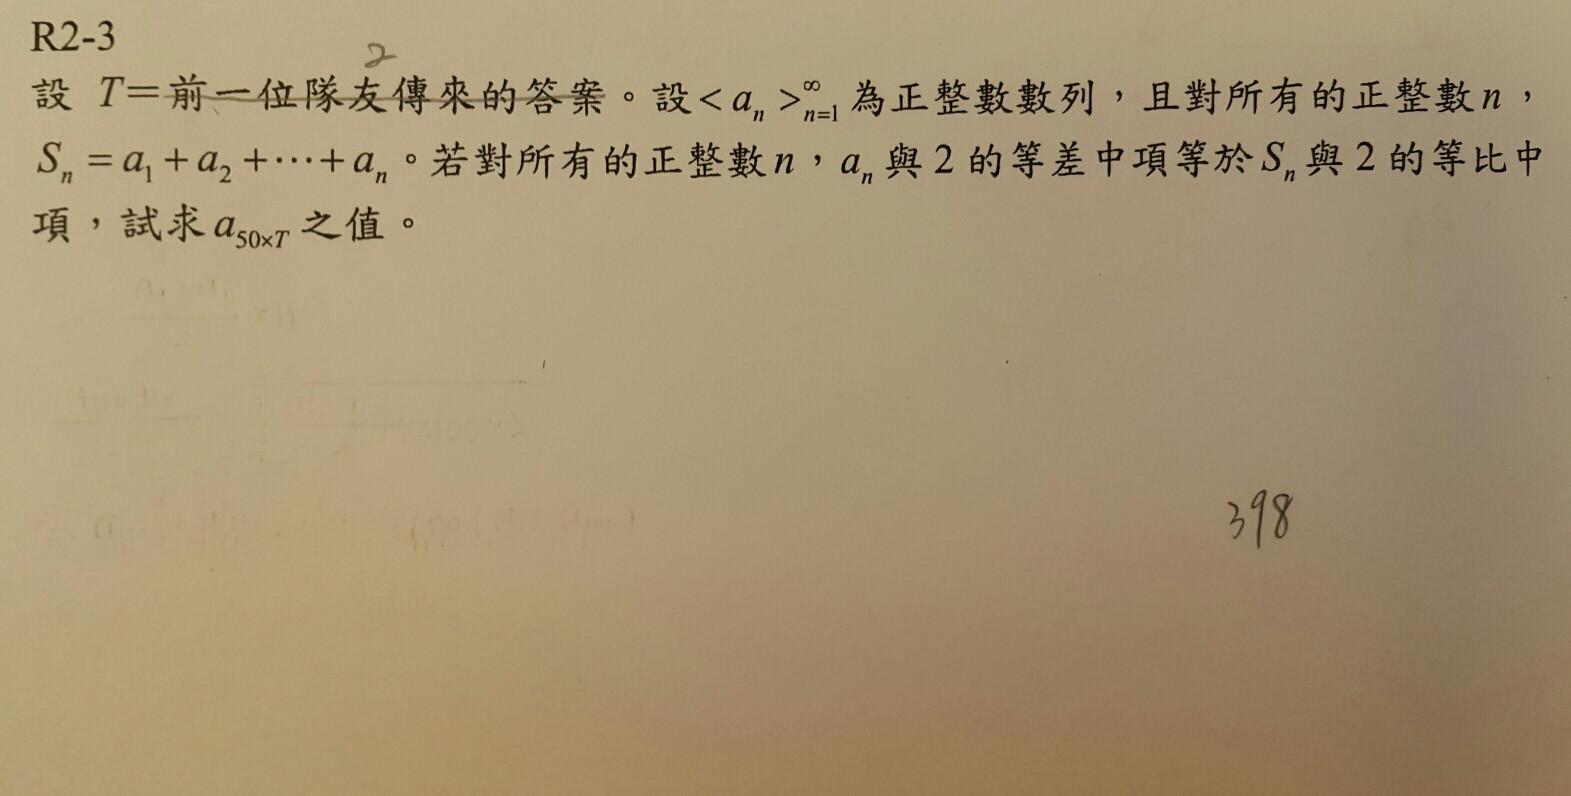 R2-3
2
設 T=前一位隊友傳來的答案。設<aₙ>ₙ₌₁^∞ 為正整數數列，且對所有的正整數n，
Sₙ=a₁+a₂+⋯+aₙ。若對所有的正整數n，aₙ與2的等差中項等於Sₙ與2的等比中
項，試求a₅₀×T之值。
398